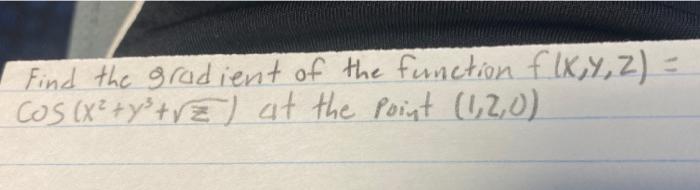 Find the gradient of the function f(x,y,z) =
cos(x²+y³+√z) at the point (1,2,0)